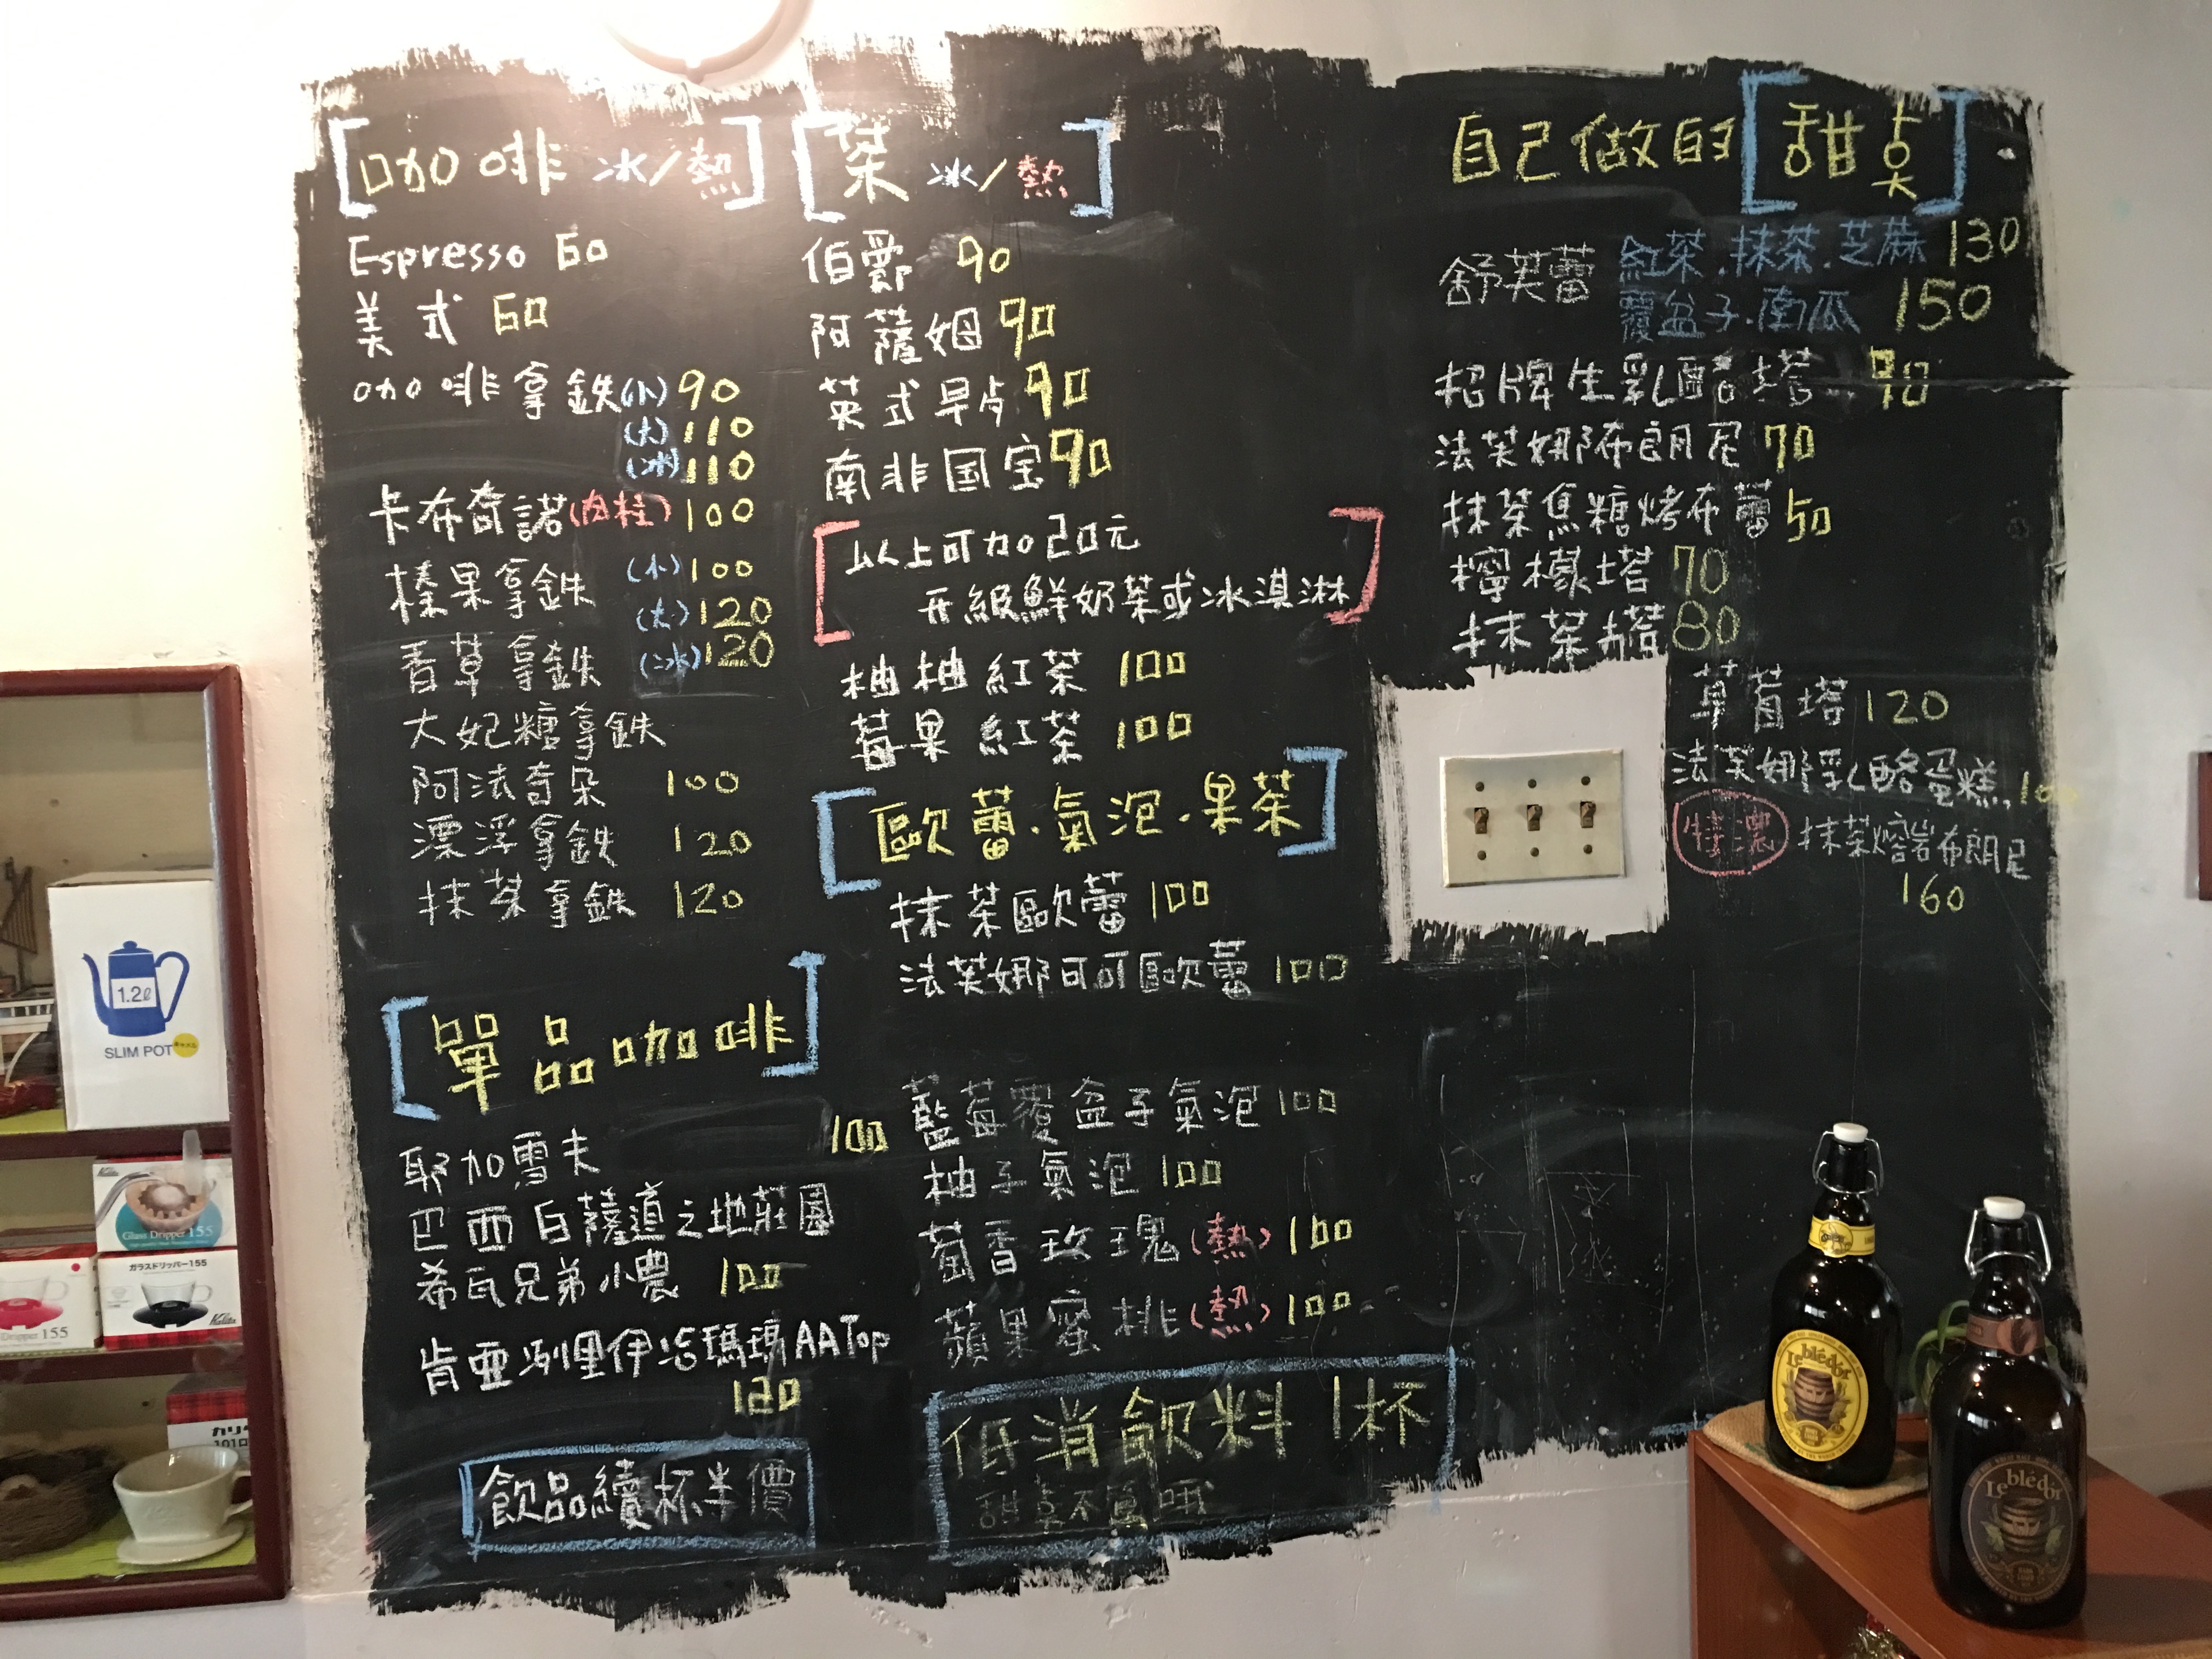 [咖啡 冰/熱]
Espresso 60
美式 60
咖啡拿鉄(小) 90
(大) 110
(冰) 110
卡布奇諾(肉桂) 100
榛果拿鉄 (小) 100
(大) 120
香草拿鉄 (冰) 120
太妃糖拿鉄
阿法奇朵 100
漂浮拿鉄 120
抹茶拿鉄 120
[單品咖啡]
耶加雪夫 100
巴西白薩道之地莊園
希瓦兄弟小農 100
肯亞冽里伊 瑪 AA Top
120
飲品續杯半價
[茶 冰/熱]
伯爵 90
阿薩姆 90
英式早 90
南非国宝 90
[以上可加20元
升級鮮奶茶或冰淇淋]
柚柚紅茶 100
莓果紅茶 100
[歐蕾.氣泡.果茶]
抹茶歐蕾 100
法芙娜可可歐蕾 100
藍莓覆盆子氣泡 100
柚子氣泡 100
萄香玫瑰(熱) 100
蘋果蜜桃(熱) 100
低消飲料1杯
甜點不算哦
自己做的[甜点]
舒芙蕾 紅茶.抹茶.芝蔴 130
覆盆子.南瓜 150
招牌生乳酪塔 90
法芙娜布朗尼 70
抹茶焦糖烤布蕾 50
檸檬塔 70
抹茶塔 80
草莓塔 120
法芙娜乳酪蛋糕 100
特濃 抹茶熔岩布朗尼
160
1.2ℓ
SLIM POT
Glass Dripper 155
ガラスドリッパー155
Kalita
Dripper 155
カリ
101
Le blé d'or
Le blé d'or